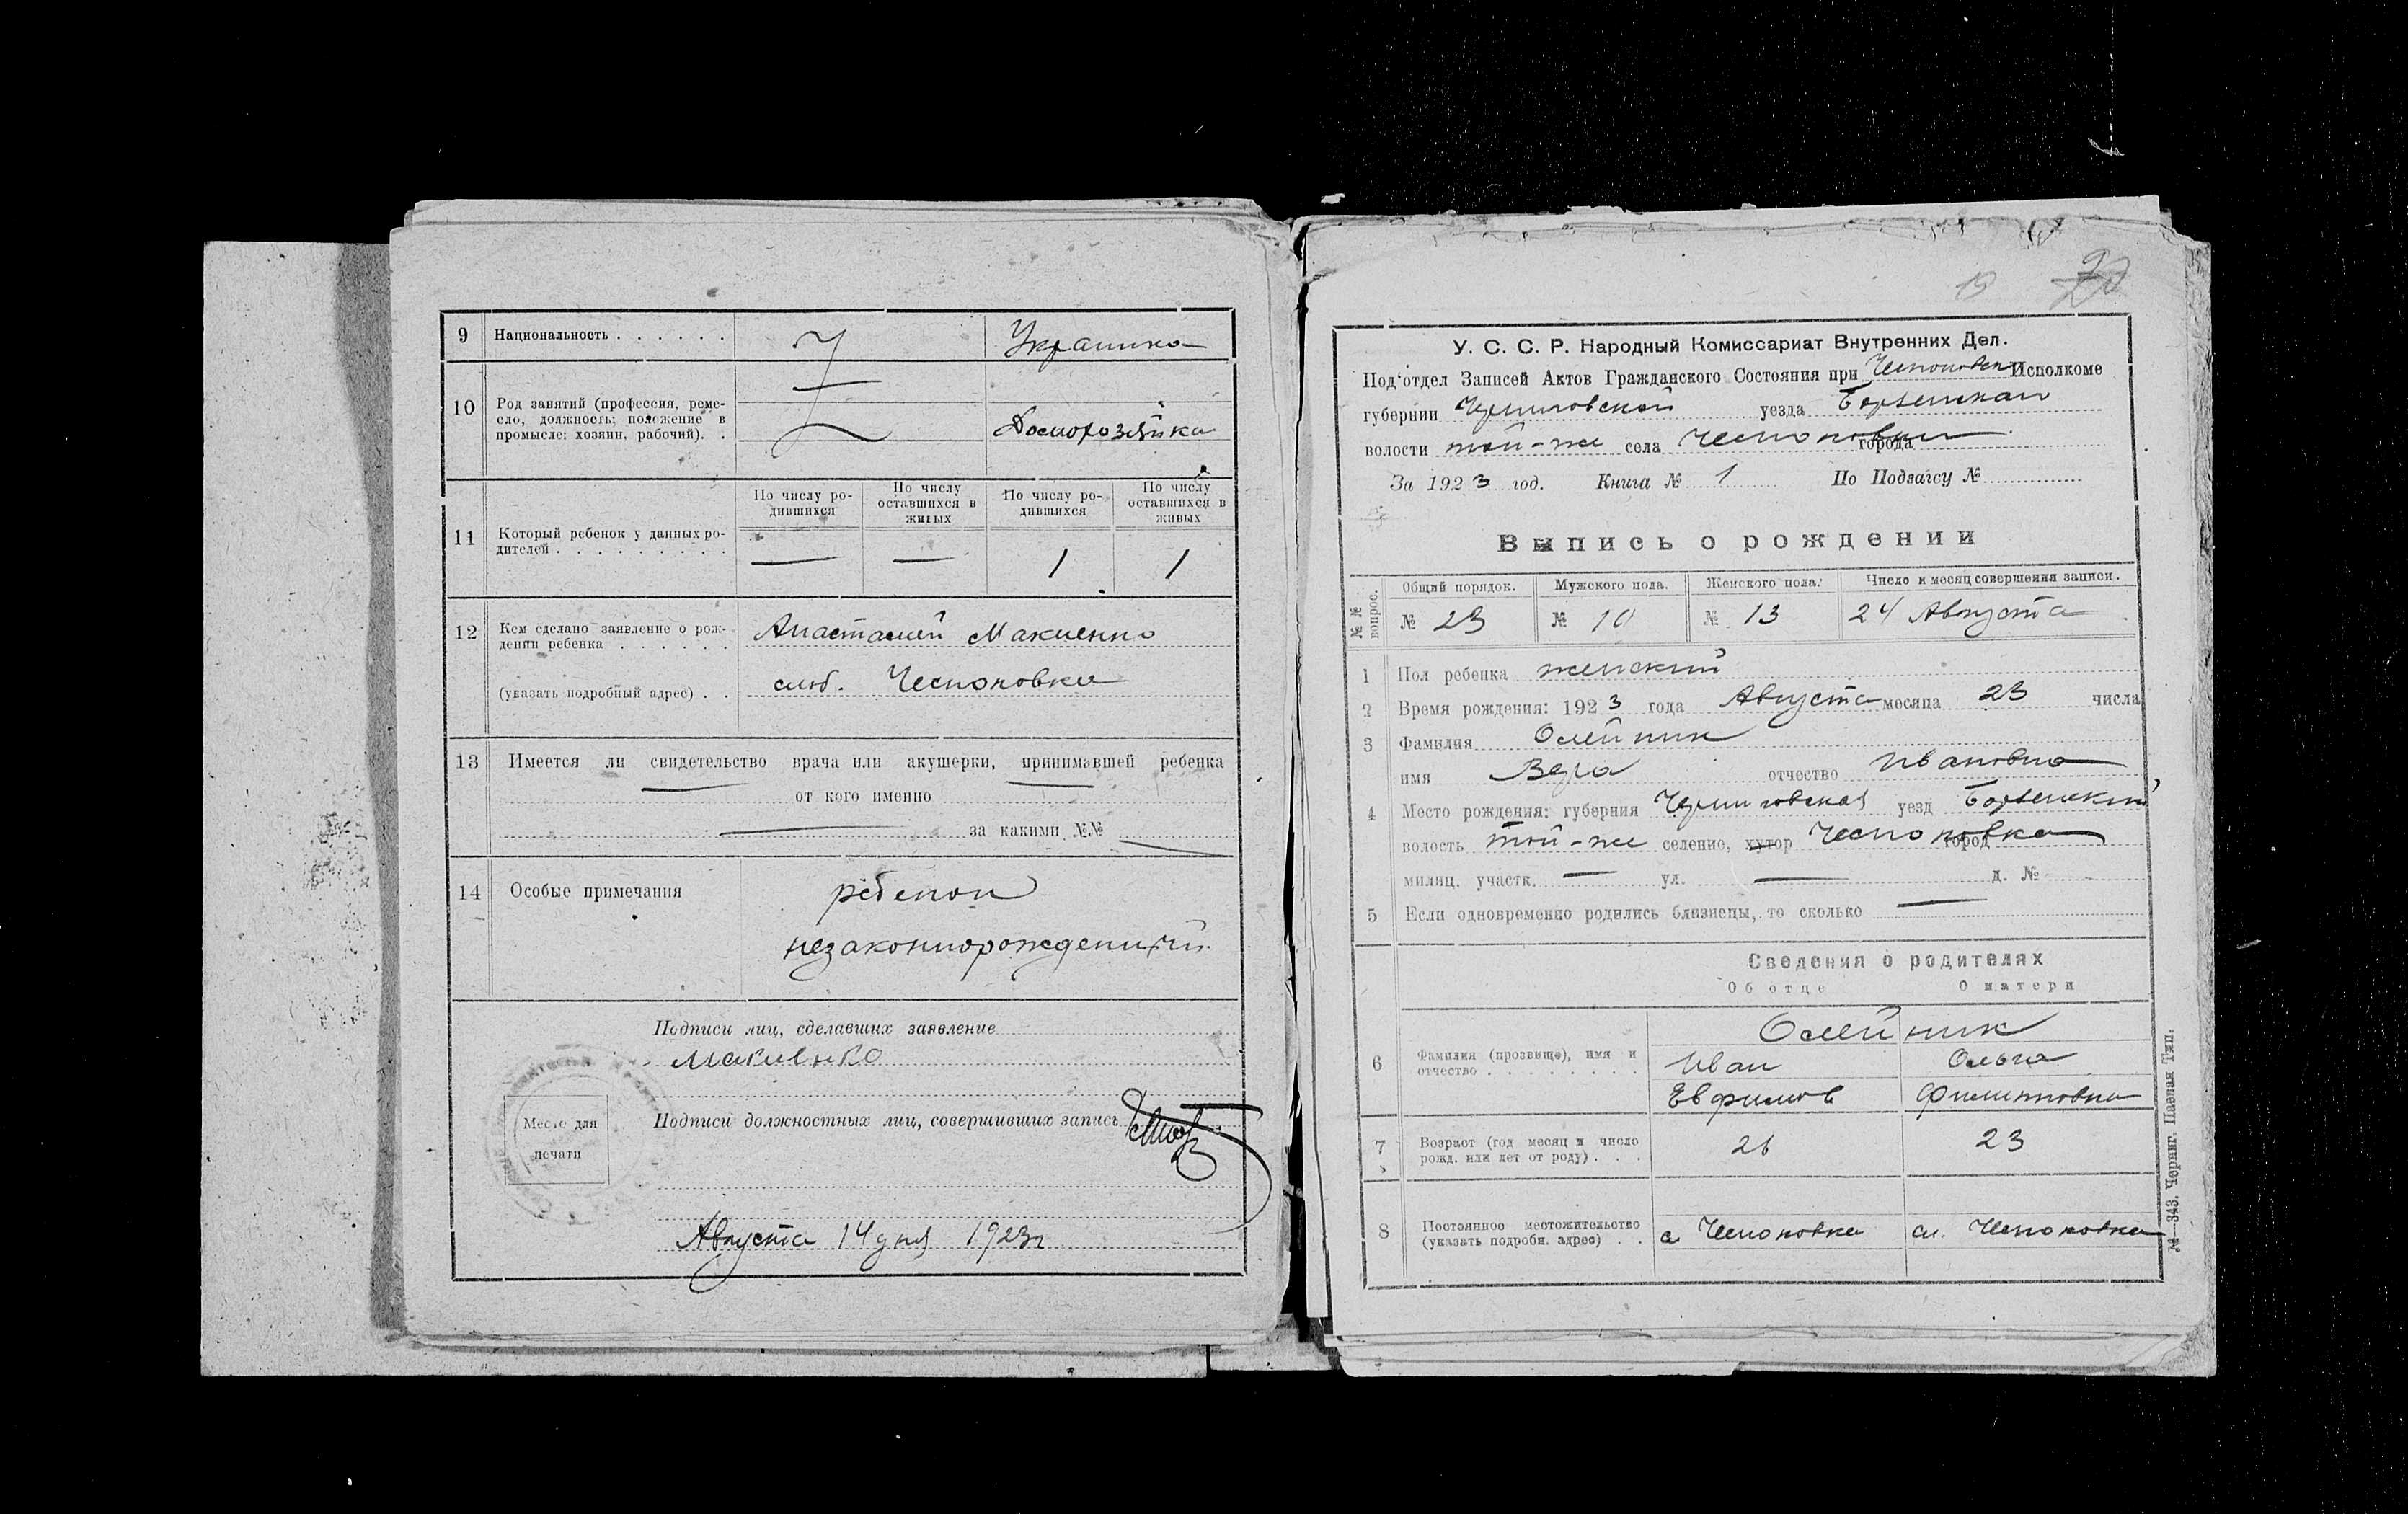 9 Национальность . . . . . . Украинка
10 Род занятий (профессия, реме-
сло, должность; положение в
промысле: хозяин, рабочий). . Домохозяйка
По числу ро-
дившихся
По числу
оставшихся в
живых
По числу ро-
дившихся
По числу
оставшихся в
живых
11 Который ребенок у данных ро-
дителей . . . . . . . . . — — 1 1
12 Кем сделано заявление о рож-
дении ребенка . . . . . . Анастасией Макиенко
(указать подробный адрес) . . Чесноковка
13 Имеется ли свидетельство врача или акушерки, принимавшей ребенка
от кого именно
за какими №№
14 Особые примечания ребенок
незаконнорожденный.
Подписи лиц, сделавших заявление
Макиенко
Место для
печати
Подписи должностных лиц, совершивших запись
Августа 14 дня 1923г
19 20
У. С. С. Р. Народный Комиссариат Внутренних Дел.
Под'отдел Записей Актов Гражданского Состояния при Исполкоме
губернии Черниговской уезда
волости той-же села Чесноковки города
За 1923 год. Книга № 1 По Подзагсу №
Выпись о рождении
№ № вопрос. Общий порядок. Мужского пола. Женского пола. Число и месяц совершения записи.
№ 23 № 10 № 13 24 Августа
1 Пол ребенка женский
2 Время рождения: 1923 года Августа месяца 23 числа
3 Фамилия Олейник
имя Вера отчество Ивановна
4 Место рождения: губерния Черниговская уезд Борзенский
волость той-же селение, хутор Чесноковка город
милиц. участк. — ул. — д. №
5 Если одновременно родились близнецы, то сколько —
Сведения о родителях
Об отце О матери
6 Фамилия (прозвище), имя и
отчество . . . . . . . .
Олейник
Иван Ольга
Ефимов Филипповна
7 Возраст (год месяц и число
рожд. или лет от роду) . . . 26 23
8 Постоянное местожительство
(указать подробн. адрес) . . с. Чесноковка сл. Чесноковка
№—343. Черниг. Павная Тип.